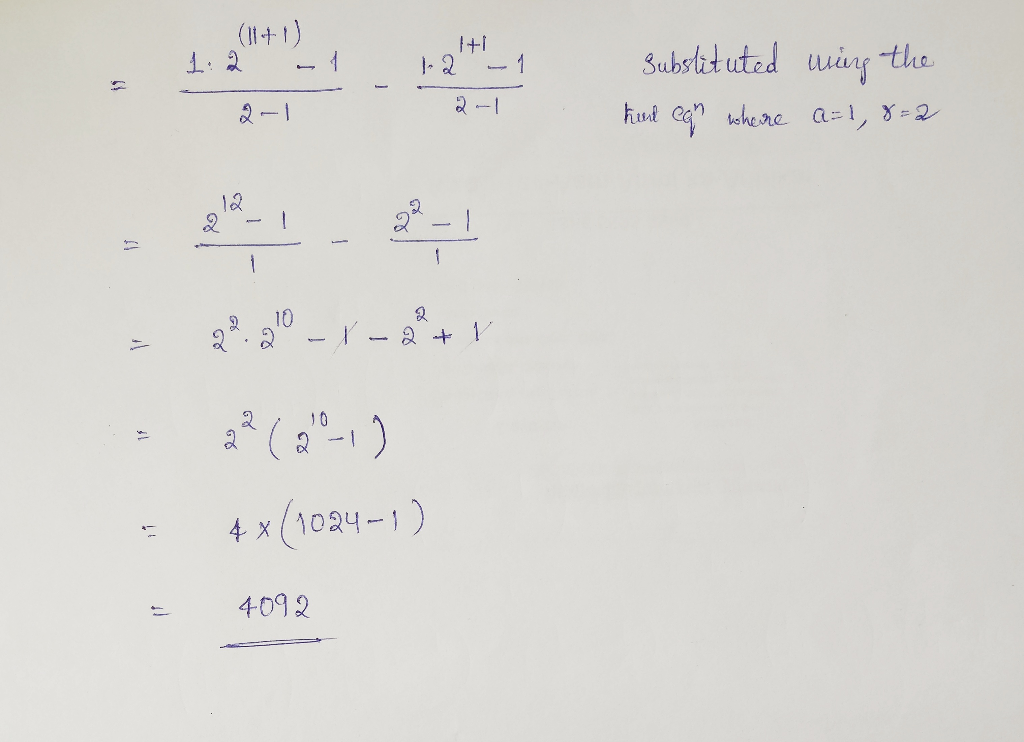 = (1·2^(11+1) − 1)/(2−1) − (1·2^(1+1) − 1)/(2−1) Substituted using the
eqⁿ where a=1, r=2
= (2^12 − 1)/1 − (2^2 − 1)/1
= 2^2 · 2^10 − 1 − 2^2 + 1
= 2^2 (2^10 − 1)
= 4 × (1024 − 1)
= 4092